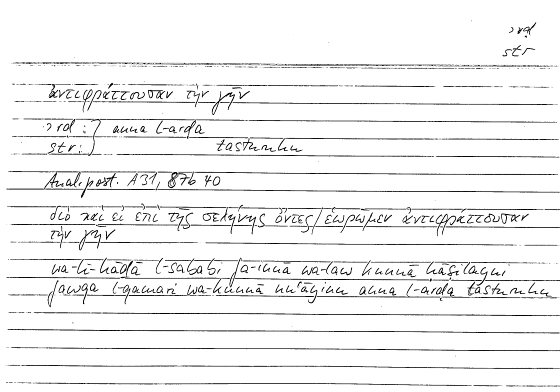 ʾrḍ
str
ἀντιφράττουσαν τὴν γῆν
ʾrḍ : } anna l-arḍa
str : } tasturuhu
Anal. post. A 31, 87b 40
διὸ καὶ εἰ ἐπὶ τῆς σελήνης ὄντες / ἑωρῶμεν ἀντιφράττουσαν
τὴν γῆν
wa-li-hāḏā l-sababi fa-innā wa-law kunnā ḥāṣilayni
fawqa l-qamari wa-kunnā nuʿāyinu anna l-arḍa tasturuhu